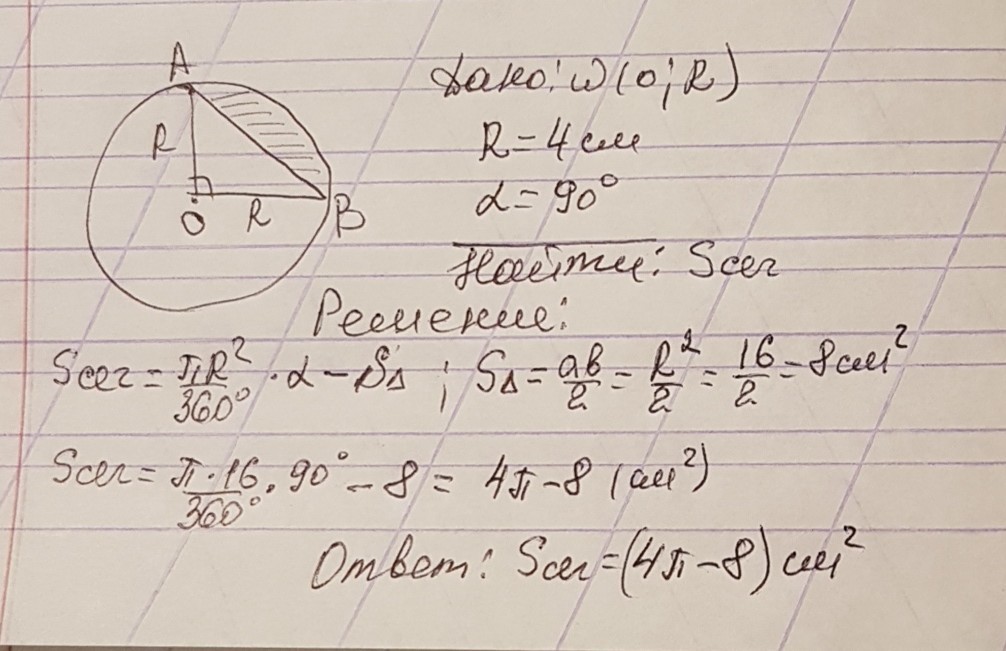 A
R
O
R
B
Дано: ω(O; R)
R = 4 см
α = 90°
Найти: Sсег
Решение:
Sсег = πR²/360° · α − S∆ ; S∆ = ab/2 = R²/2 = 16/2 = 8 см²
Sсег = π·16/360° · 90° − 8 = 4π − 8 (см²)
Ответ: Sсег = (4π − 8) см²